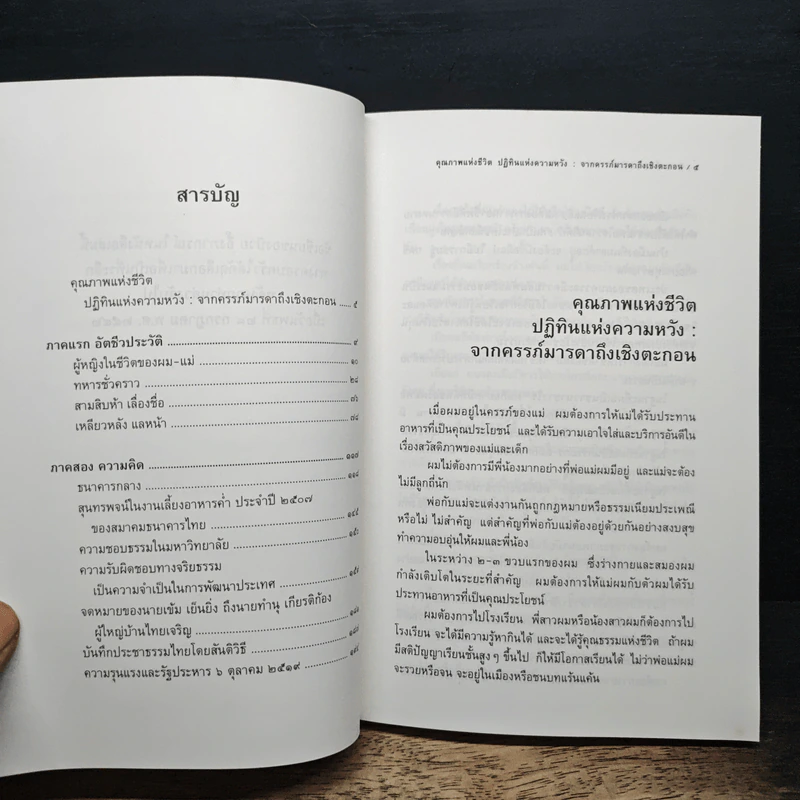 สารบัญ
คุณภาพแห่งชีวิต
ปฏิทินแห่งความหวัง : จากครรภ์มารดาถึงเชิงตะกอน ..... ๕
ภาคแรก อัตชีวประวัติ ..... ๙
ผู้หญิงในชีวิตของผม-แม่ ..... ๑๐
ทหารชั่วคราว ..... ๒๘
สามสิบห้า เลื่องชื่อ ..... ๗๖
เหลียวหลัง แลหน้า ..... ๗๘
ภาคสอง ความคิด ..... ๑๑๗
ธนาคารกลาง ..... ๑๑๘
สุนทรพจน์ในงานเลี้ยงอาหารค่ำ ประจำปี ๒๕๐๗
ของสมาคมธนาคารไทย ..... ๑๔๕
ความชอบธรรมในมหาวิทยาลัย ..... ๑๕๑
ความรับผิดชอบทางจริยธรรม
เป็นความจำเป็นในการพัฒนาประเทศ ..... ๑๕๙
จดหมายของนายเข้ม เย็นยิ่ง ถึงนายทำนุ เกียรติก้อง
ผู้ใหญ่บ้านไทยเจริญ .....
บันทึกประชาธรรมไทยโดยสันติวิธี .....
ความรุนแรงและรัฐประหาร ๖ ตุลาคม ๒๕๑๙ .....
คุณภาพแห่งชีวิต ปฏิทินแห่งความหวัง : จากครรภ์มารดาถึงเชิงตะกอน / ๕
คุณภาพแห่งชีวิต
ปฏิทินแห่งความหวัง :
จากครรภ์มารดาถึงเชิงตะกอน
เมื่อผมอยู่ในครรภ์ของแม่ ผมต้องการให้แม่ได้รับประทาน
อาหารที่เป็นคุณประโยชน์ และได้รับความเอาใจใส่และบริการอันดีใน
เรื่องสวัสดิภาพของแม่และเด็ก
ผมไม่ต้องการมีพี่น้องมากอย่างที่พ่อแม่ผมมีอยู่ และแม่จะต้อง
ไม่มีลูกถี่นัก
พ่อกับแม่จะแต่งงานกันถูกกฎหมายหรือธรรมเนียมประเพณี
หรือไม่ ไม่สำคัญ แต่สำคัญที่พ่อกับแม่ต้องอยู่ด้วยกันอย่างสงบสุข
ทำความอบอุ่นให้ผมและพี่น้อง
ในระหว่าง ๒-๓ ขวบแรกของผม ซึ่งร่างกายและสมองผม
กำลังเติบโตในระยะที่สำคัญ ผมต้องการให้แม่ผมกับตัวผมได้รับ
ประทานอาหารที่เป็นคุณประโยชน์
ผมต้องการไปโรงเรียน พี่สาวผมหรือน้องสาวผมก็ต้องการไป
โรงเรียน จะได้มีความรู้หากินได้ และจะได้รู้คุณธรรมแห่งชีวิต ถ้าผม
มีสติปัญญาเรียนชั้นสูง ๆ ขึ้นไป ก็ให้มีโอกาสเรียนได้ ไม่ว่าพ่อแม่ผม
จะรวยหรือจน จะอยู่ในเมืองหรือชนบทแร้นแค้น